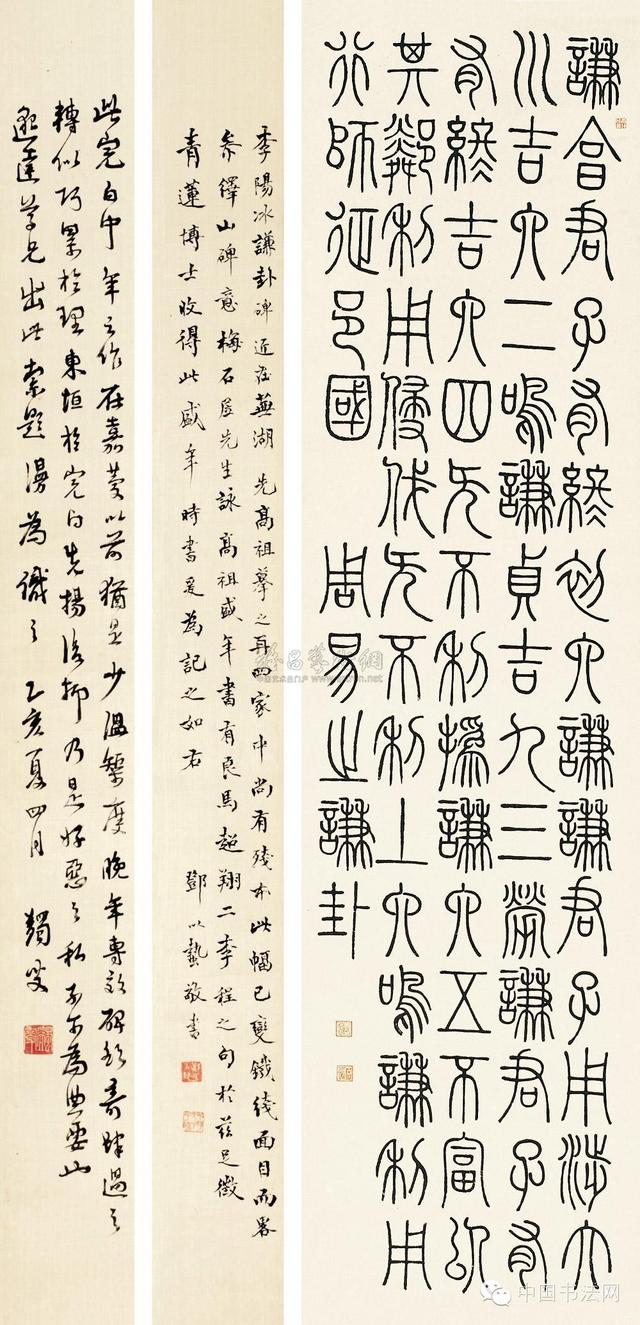 謙亯君子有終初六謙謙君子用涉大
川吉六二鳴謙貞吉九三勞謙君子有
終吉六四无不利撝謙六五不富以
其鄰利用侵伐无不利上六鳴謙利用
行師征邑國　周易上謙卦
李陽冰謙卦碑近在蕪湖先高祖摹之再四家中尚有殘本此幅已變鐵线面目而略
參繹山碑意梅石居先生詠高祖盛年書有良馬超翔二李程之句於茲足徵
青蓮博士收得此盛年時書爰為記之如右　鄧以蟄敬書
此完白中年之作在嘉慶以前猶是少溫榘度晚年專效碑額奇肆過之
轉似巧累於理東垣於完白先揚後抑乃是好惡之私不可為典要也
造草兄出此索題漫為識之乙亥夏四月　蠲叟
中国书法网